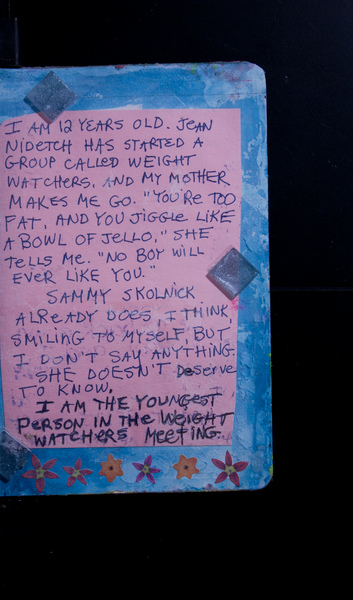 I AM 12 YEARS OLD. JEAN
NIDETCH HAS STARTED A
GROUP CALLED WEIGHT
WATCHERS, AND MY MOTHER
MAKES ME GO. "YOU'RE TOO
FAT, AND YOU JIGGLE LIKE
A BOWL OF JELLO," SHE
TELLS ME. "NO BOY WILL
EVER LIKE YOU."
SAMMY SKOLNICK
ALREADY DOES, I THINK,
SMILING TO MYSELF, BUT
I DON'T SAY ANYTHING.
SHE DOESN'T Deserve
TO KNOW.
I AM THE YOUNGEST
PERSON IN THE WEIGHT
WATCHERS MEETING.